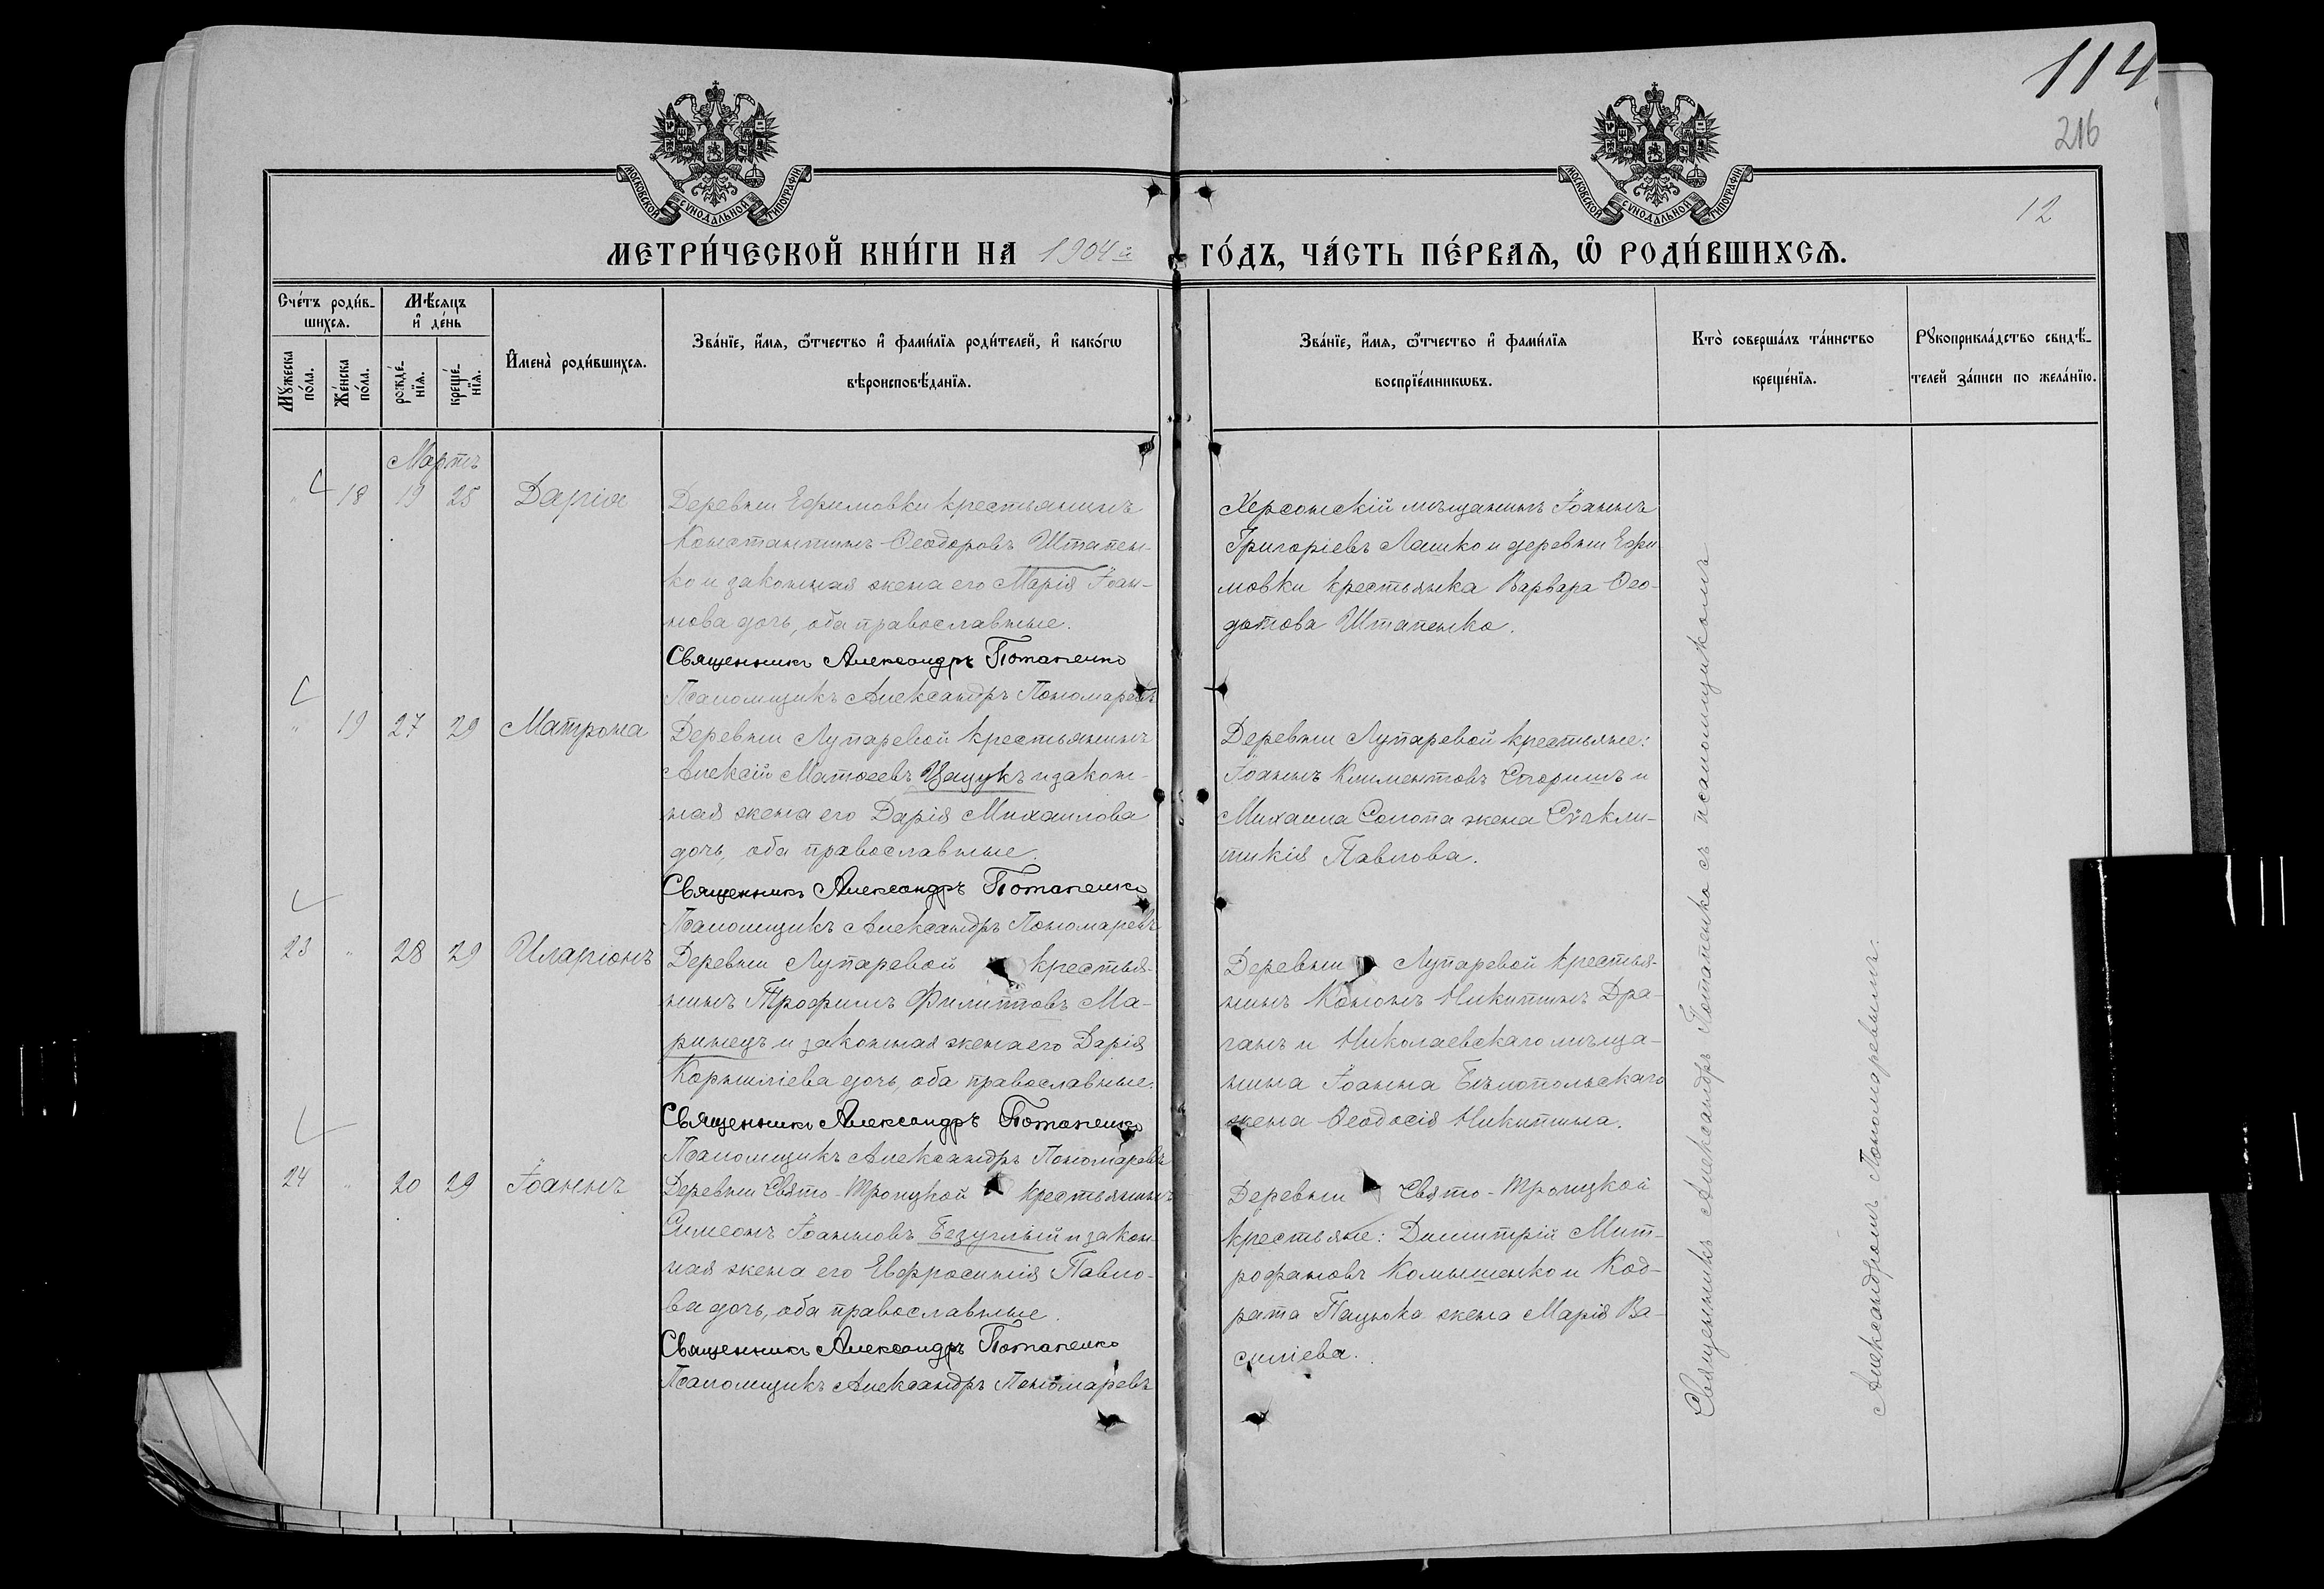 114
216
12
МОСКОВСКОЙ СУНОДАЛЬНОЙ ТИПОГРАФІИ
МОСКОВСКОЙ СУНОДАЛЬНОЙ ТИПОГРАФІИ
МЕТРИ́ЧЕСКОЙ КНИ́ГИ НА 1904й ГО́ДЪ, ЧА́СТЬ ПЕ́РВАѦ, Ѽ РОДИ́ВШИХСѦ.
Сче́тъ роди́в-
шихсѧ.
Мꙋ́жеска по́ла.
Же́нска по́ла.
Мѣ́сѧцъ
и҆ де́нь
рожде́-
нїѧ.
креще́-
нїѧ.
И҆мена̀ роди́вшихсѧ.
Зва́нїе, и҆́мѧ, ѻ҆́тчество и҆ фами́лїѧ роди́телей, и҆ како́гѡ
вѣроисповѣ́данїѧ.
Зва́нїе, и҆́мѧ, ѻ҆́тчество и҆ фами́лїѧ
воспрїе́мникѡвъ.
Кто̀ соверша́лъ та́инство
креще́нїѧ.
Рꙋкоприкла́дство свидѣ́-
телей за́писи по жела́нїю.
Мартъ
" 18 19 25 Дарія
Деревни Ефимовки крестьянинъ
Константинъ Ѳеодоровъ Штапен-
ко и законная жена его Марія Іоан-
нова дочь, оба православные.
Священникъ Александръ Потапенко
Псаломщикъ Александръ Пономаревъ
Херсонскій мѣщанинъ Іоаннъ
Григоріевъ Лашко и деревни Ефи
мовки крестьянка Варвара Ѳео-
дотова Штапенко.
" 19 27 29 Матрона
Деревни Лупаревой крестьянинъ
Алексій Матѳеевъ Цацукъ и закон-
ная жена его Дарія Михаилова
дочь, оба православные.
Священникъ Александръ Потапенко
Псаломщикъ Александръ Пономаревъ
Деревни Лупаревой крестьяне:
Іоаннъ Климентовъ Спориш и
Михаила Солопа жена Сѵнкли-
тикія Павлова.
23 " 28 29 Иларіонъ
Деревни Лупаревой крестья-
нинъ Трофимъ Филипповъ Ма-
ринецъ и законная жена его Дарія
Корниліева дочь, оба православные.
Священникъ Александръ Потапенко
Псаломщикъ Александръ Пономаревъ
Деревни Лупаревой крестья-
нинъ Кононъ Никитинъ Дра-
ганъ и Николаевскаго мѣща-
нина Іоанна Бѣлопольскаго
жена Ѳеодосія Никитина.
24 " 20 29 Іоаннъ
Деревни Свято-Троицкой крестьянинъ
Симеонъ Іоанновъ Безуглый и закон-
ная жена его Евфросинія Павло-
ва дочь, оба православные.
Священникъ Александръ Потапенко
Псаломщикъ Александръ Пономаревъ
Деревни Свято-Троицкой
крестьяне: Димитрій Мит-
рофановъ Комышенко и Код-
рата Пацюка жена Марія Ва-
силіева.
Священникъ Александръ Потапенко съ псаломщикомъ
Александромъ Пономаревымъ.